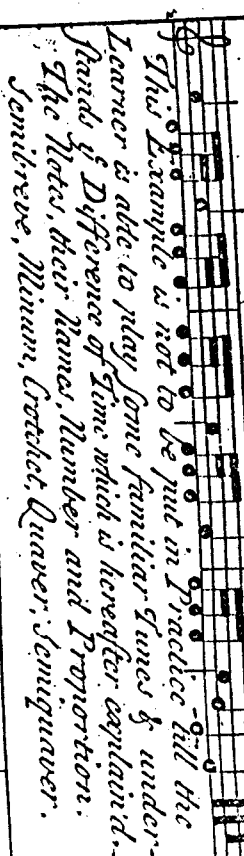 This Example is not to be put in Practice till the
Learner is able to play some familiar Tunes & under-
stands ye Difference of Time which is hereafter explain'd.
The Notes, their Names, Number and Proportion.
Semibreve, Minum, Crotchet, Quaver, Semiquaver.